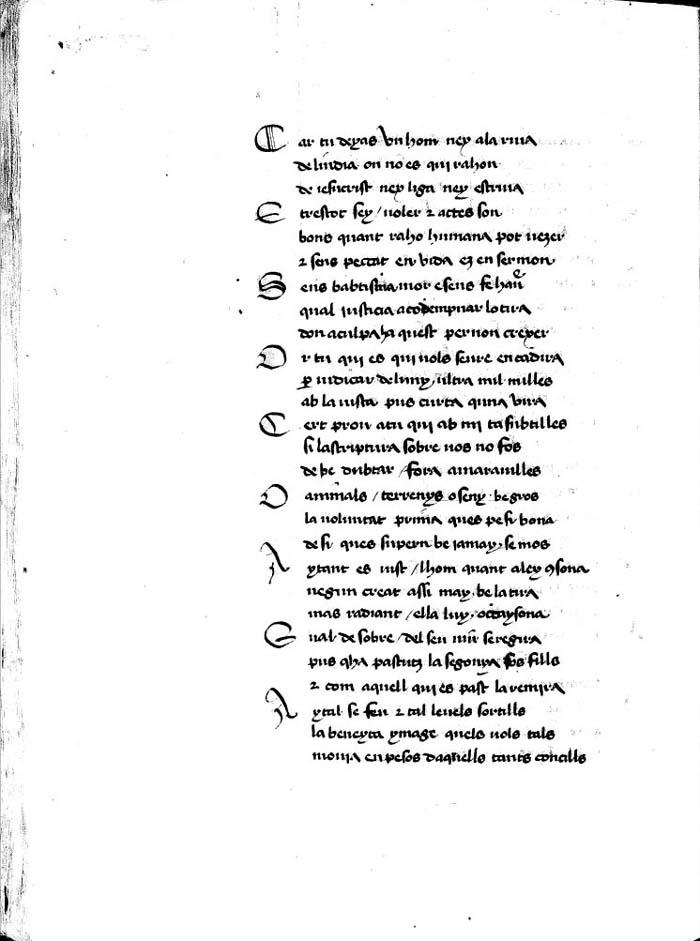 Car tu deyas Vn hom nex ala riua
de lindia on no es qui rahon
de iesucrist nex liga nex escriua
E trestot sey / uoler 2 actes son
bons quant raho humana pot uezer
2 sens peccat en vida ez en sermon
Sens babtisma mor e sens fe
qual iusticia acodempnar lo tira
don a culpa ha quest per non crexer
Or tu qui es qui uols seure en cadira
per iudicar de luny, ultra mil milles
ab la uista pus curta quna vira
Cert prou atu qui ab mi tassubtilles
si lascriptura sobre uos no fos
de be dubtar / fora amarauilles
O animals / terrenys o seny be gros
la uoluntat prima ques pe si bona
de si ques supern be iamay, se mos
Aytant es iust / lhom quant a ley 9sona
negun creat assi may, be la tira
mas radiant / ella luy, occaysona
Gual de sobre / del seu niu se regira
pus qha pastutz la segonya sos fills
2 com aquell qui es past la remira
Aytal se feu 2 tal leuels sortills
la beneyta ymage quels uols tals
mouia en pesos daquells tants concills